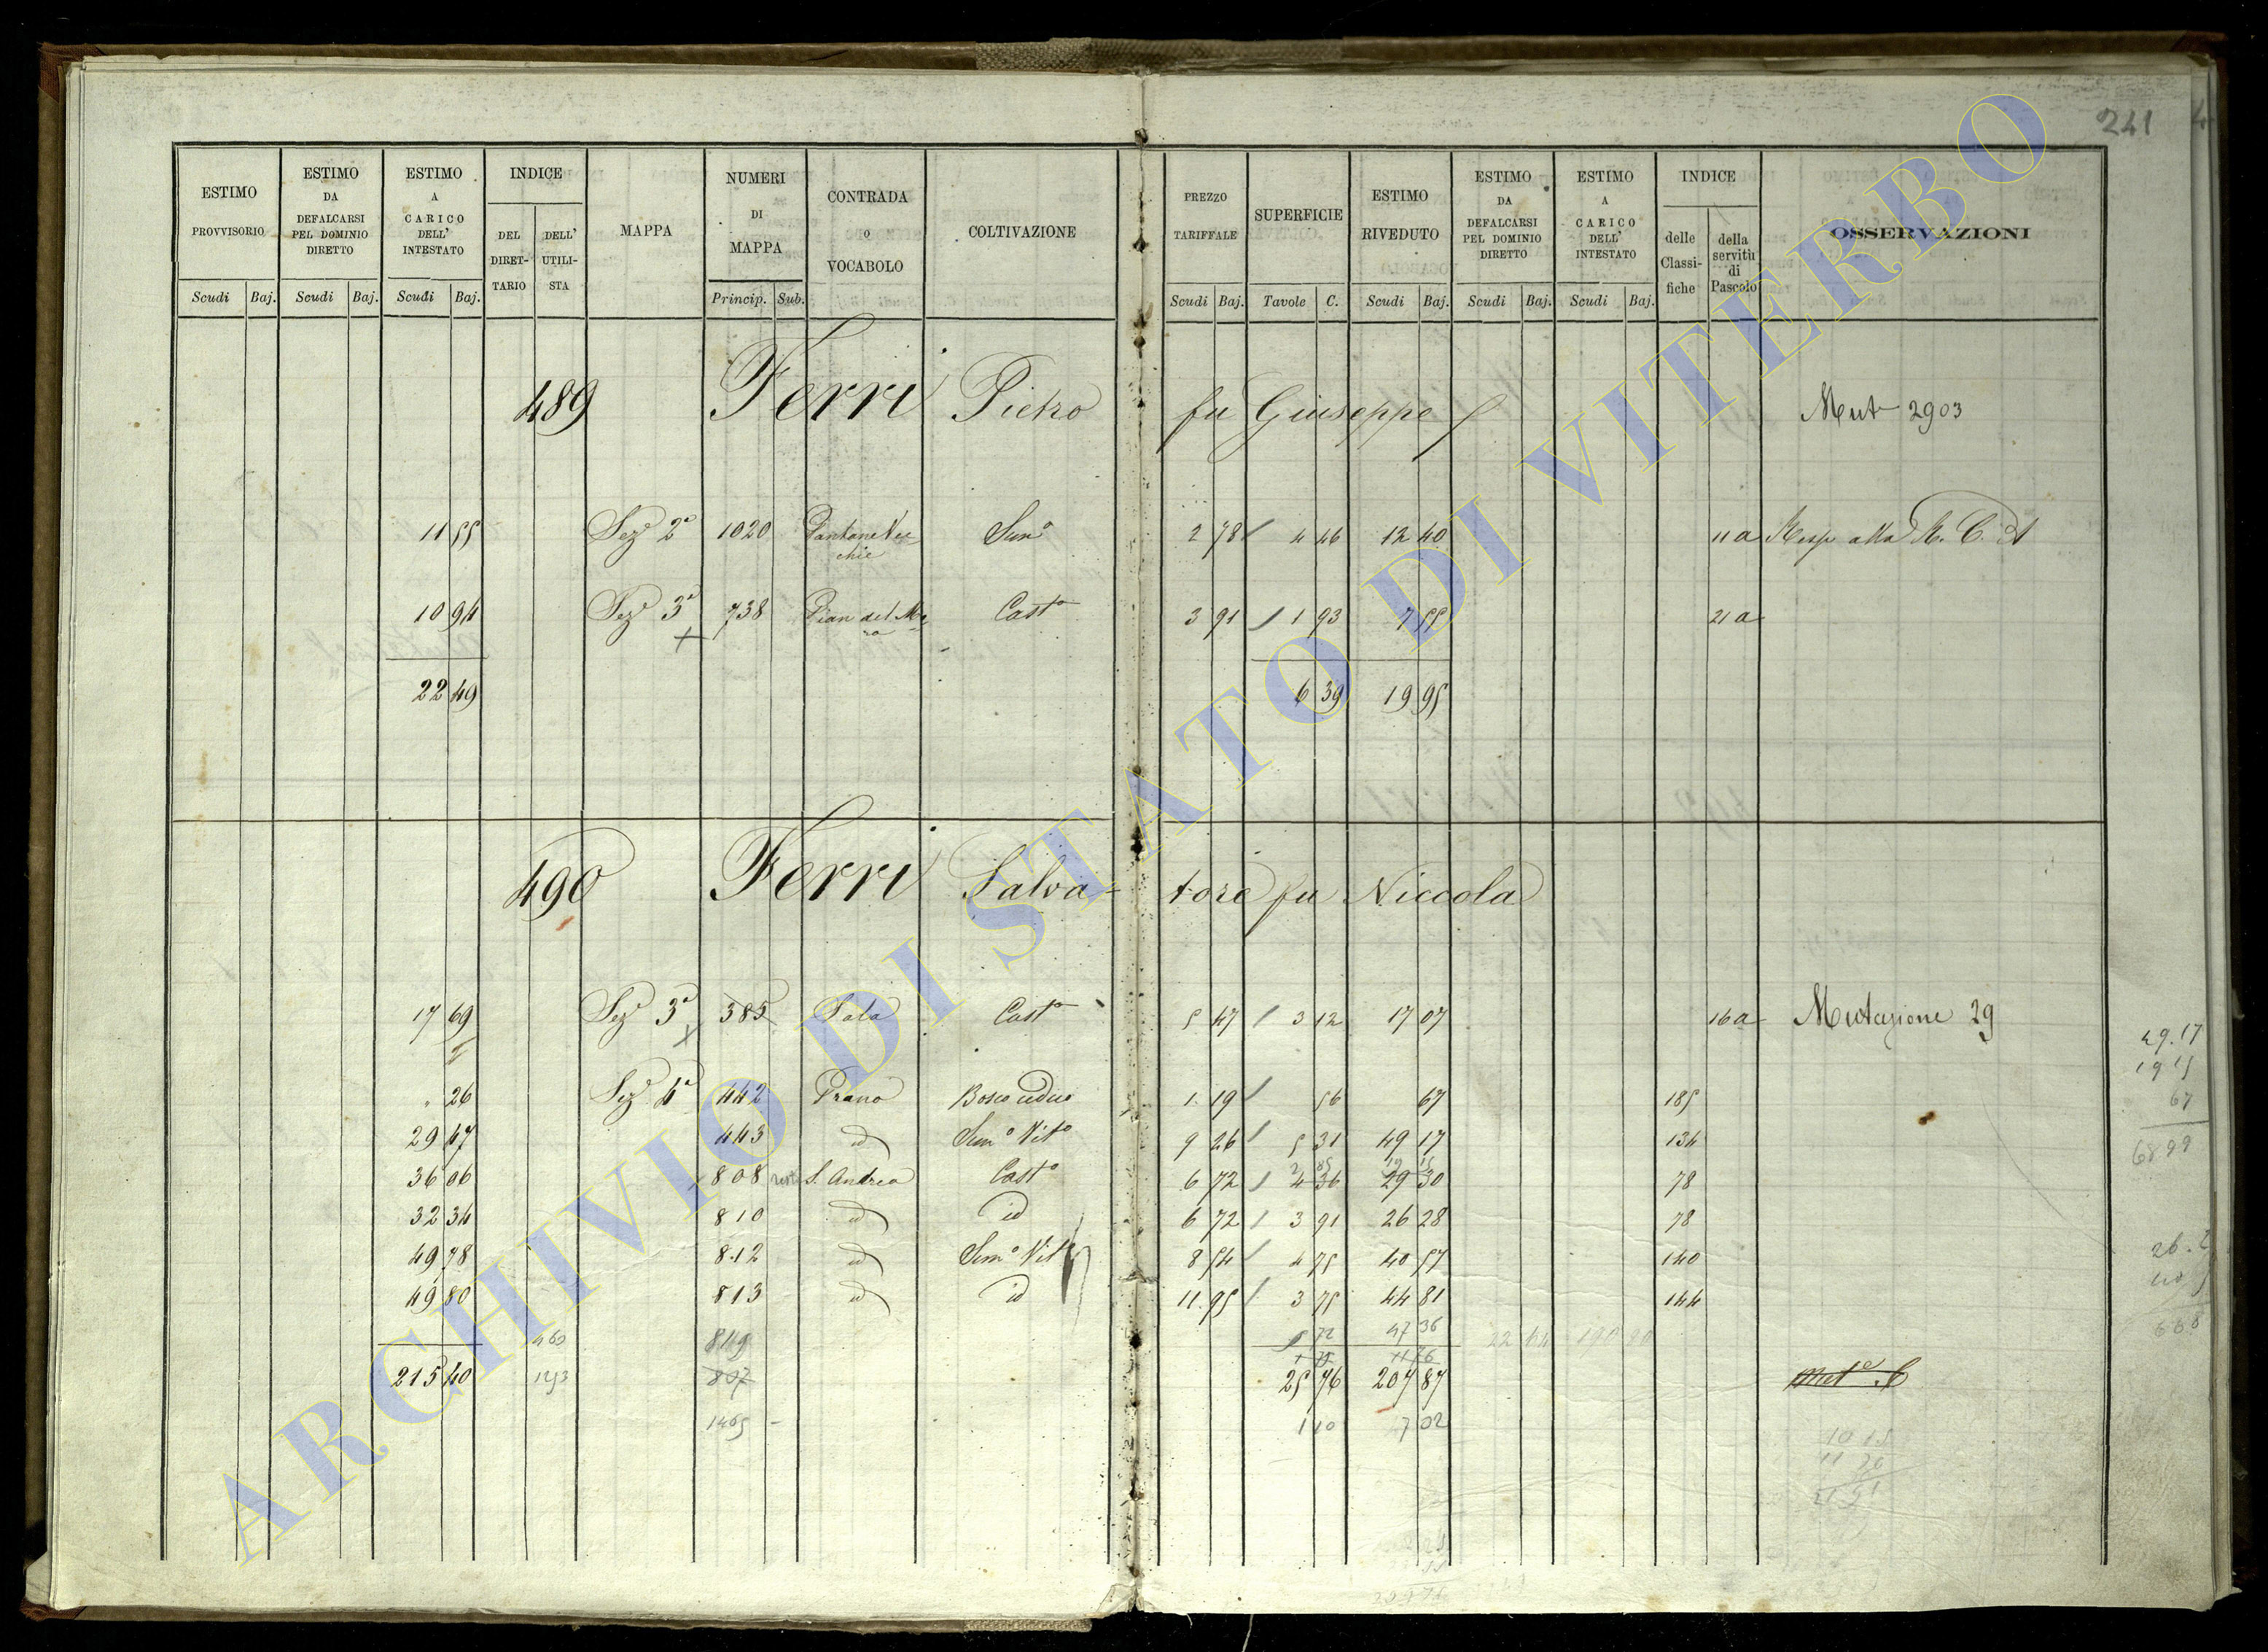 241
ESTIMO PROVVISORIO Scudi Baj.
ESTIMO DA DEFALCARSI PEL DOMINIO DIRETTO Scudi Baj.
ESTIMO A CARICO DELL' INTESTATO Scudi Baj.
INDICE DEL DIRETTARIO DELL' UTILISTA
MAPPA
NUMERI DI MAPPA Princip. Sub.
CONTRADA O VOCABOLO
COLTIVAZIONE
PREZZO TARIFFALE Scudi Baj.
SUPERFICIE Tavole C.
ESTIMO RIVEDUTO Scudi Baj.
ESTIMO DA DEFALCARSI PEL DOMINIO DIRETTO Scudi Baj.
ESTIMO A CARICO DELL' INTESTATO Scudi Baj.
INDICE delle Classifiche della servitù di Pascolo
OSSERVAZIONI
489 Ferri Pietro fu Giuseppe Mut 2903
11 55 Sez 2a 1020 Pantane Vec Sem° 2 78 4 46 12 40 11 a Risp alla R. C. A
chie
10 94 Sez 3a 738 Pian del Me Casto 3 91 1 93 7 55 21 a
ro
22 49 6 39 19 95
490 Ferri Salvatore fu Niccola
17 69 Sez 3a 385 Sala Casto 5 47 3 12 17 07 16 a Mutazione 29
49.17
19 15
67
68 99
26 Sez 4a 442 Prano Bosco ceduo 1 19 56 67 185
29 47 443 id Sem° Vito 9 26 5 31 49 17 134
2 85 19 15
36 06 808 rest S. Andrea Casto 6 72 4 36 29 30 78
32 34 810 id id 6 72 3 91 26 28 78
49 78 812 id Sem° Vito 8 54 4 75 40 57 140
49 80 813 id id 11 95 3 75 44 81 144
460 819 5 72 47 36 22 64 190 20
1 75 11 76
215 40 1253 807 25 76 207 87 Met° C
1405 1 10 7 02
10 15
11 26
21 51
ARCHIVIO DI STATO DI VITERBO